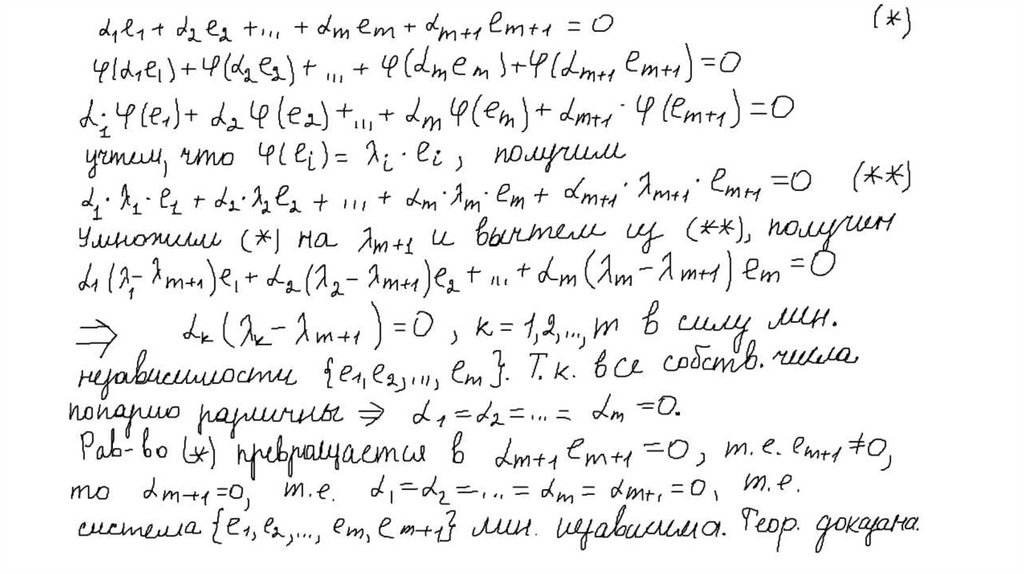 α₁e₁ + α₂e₂ + ... + αₘeₘ + αₘ₊₁eₘ₊₁ = 0 (*)
φ(α₁e₁) + φ(α₂e₂) + ... + φ(αₘeₘ) + φ(αₘ₊₁eₘ₊₁) = 0
α₁·φ(e₁) + α₂φ(e₂) + ... + αₘφ(eₘ) + αₘ₊₁·φ(eₘ₊₁) = 0
учтем, что φ(eᵢ) = λᵢ·eᵢ, получим
α₁·λ₁·e₁ + α₂·λ₂e₂ + ... + αₘ·λₘ·eₘ + αₘ₊₁·λₘ₊₁·eₘ₊₁ = 0 (**)
Умножим (*) на λₘ₊₁ и вычтем из (**), получим
α₁(λ₁-λₘ₊₁)e₁ + α₂(λ₂-λₘ₊₁)e₂ + ... + αₘ(λₘ-λₘ₊₁)eₘ = 0
⇒ αₖ(λₖ-λₘ₊₁) = 0, k = 1,2,...,m в силу лин.
независимости {e₁,e₂,...,eₘ}. Т.к. все собств. числа
попарно различны ⇒ α₁ = α₂ = ... = αₘ = 0.
Рав-во (*) превращается в αₘ₊₁eₘ₊₁ = 0, т.е. eₘ₊₁ ≠ 0,
то αₘ₊₁ = 0, т.е. α₁ = α₂ = ... = αₘ = αₘ₊₁ = 0, т.е.
система {e₁,e₂,...,eₘ,eₘ₊₁} лин. независима. Теор. доказана.